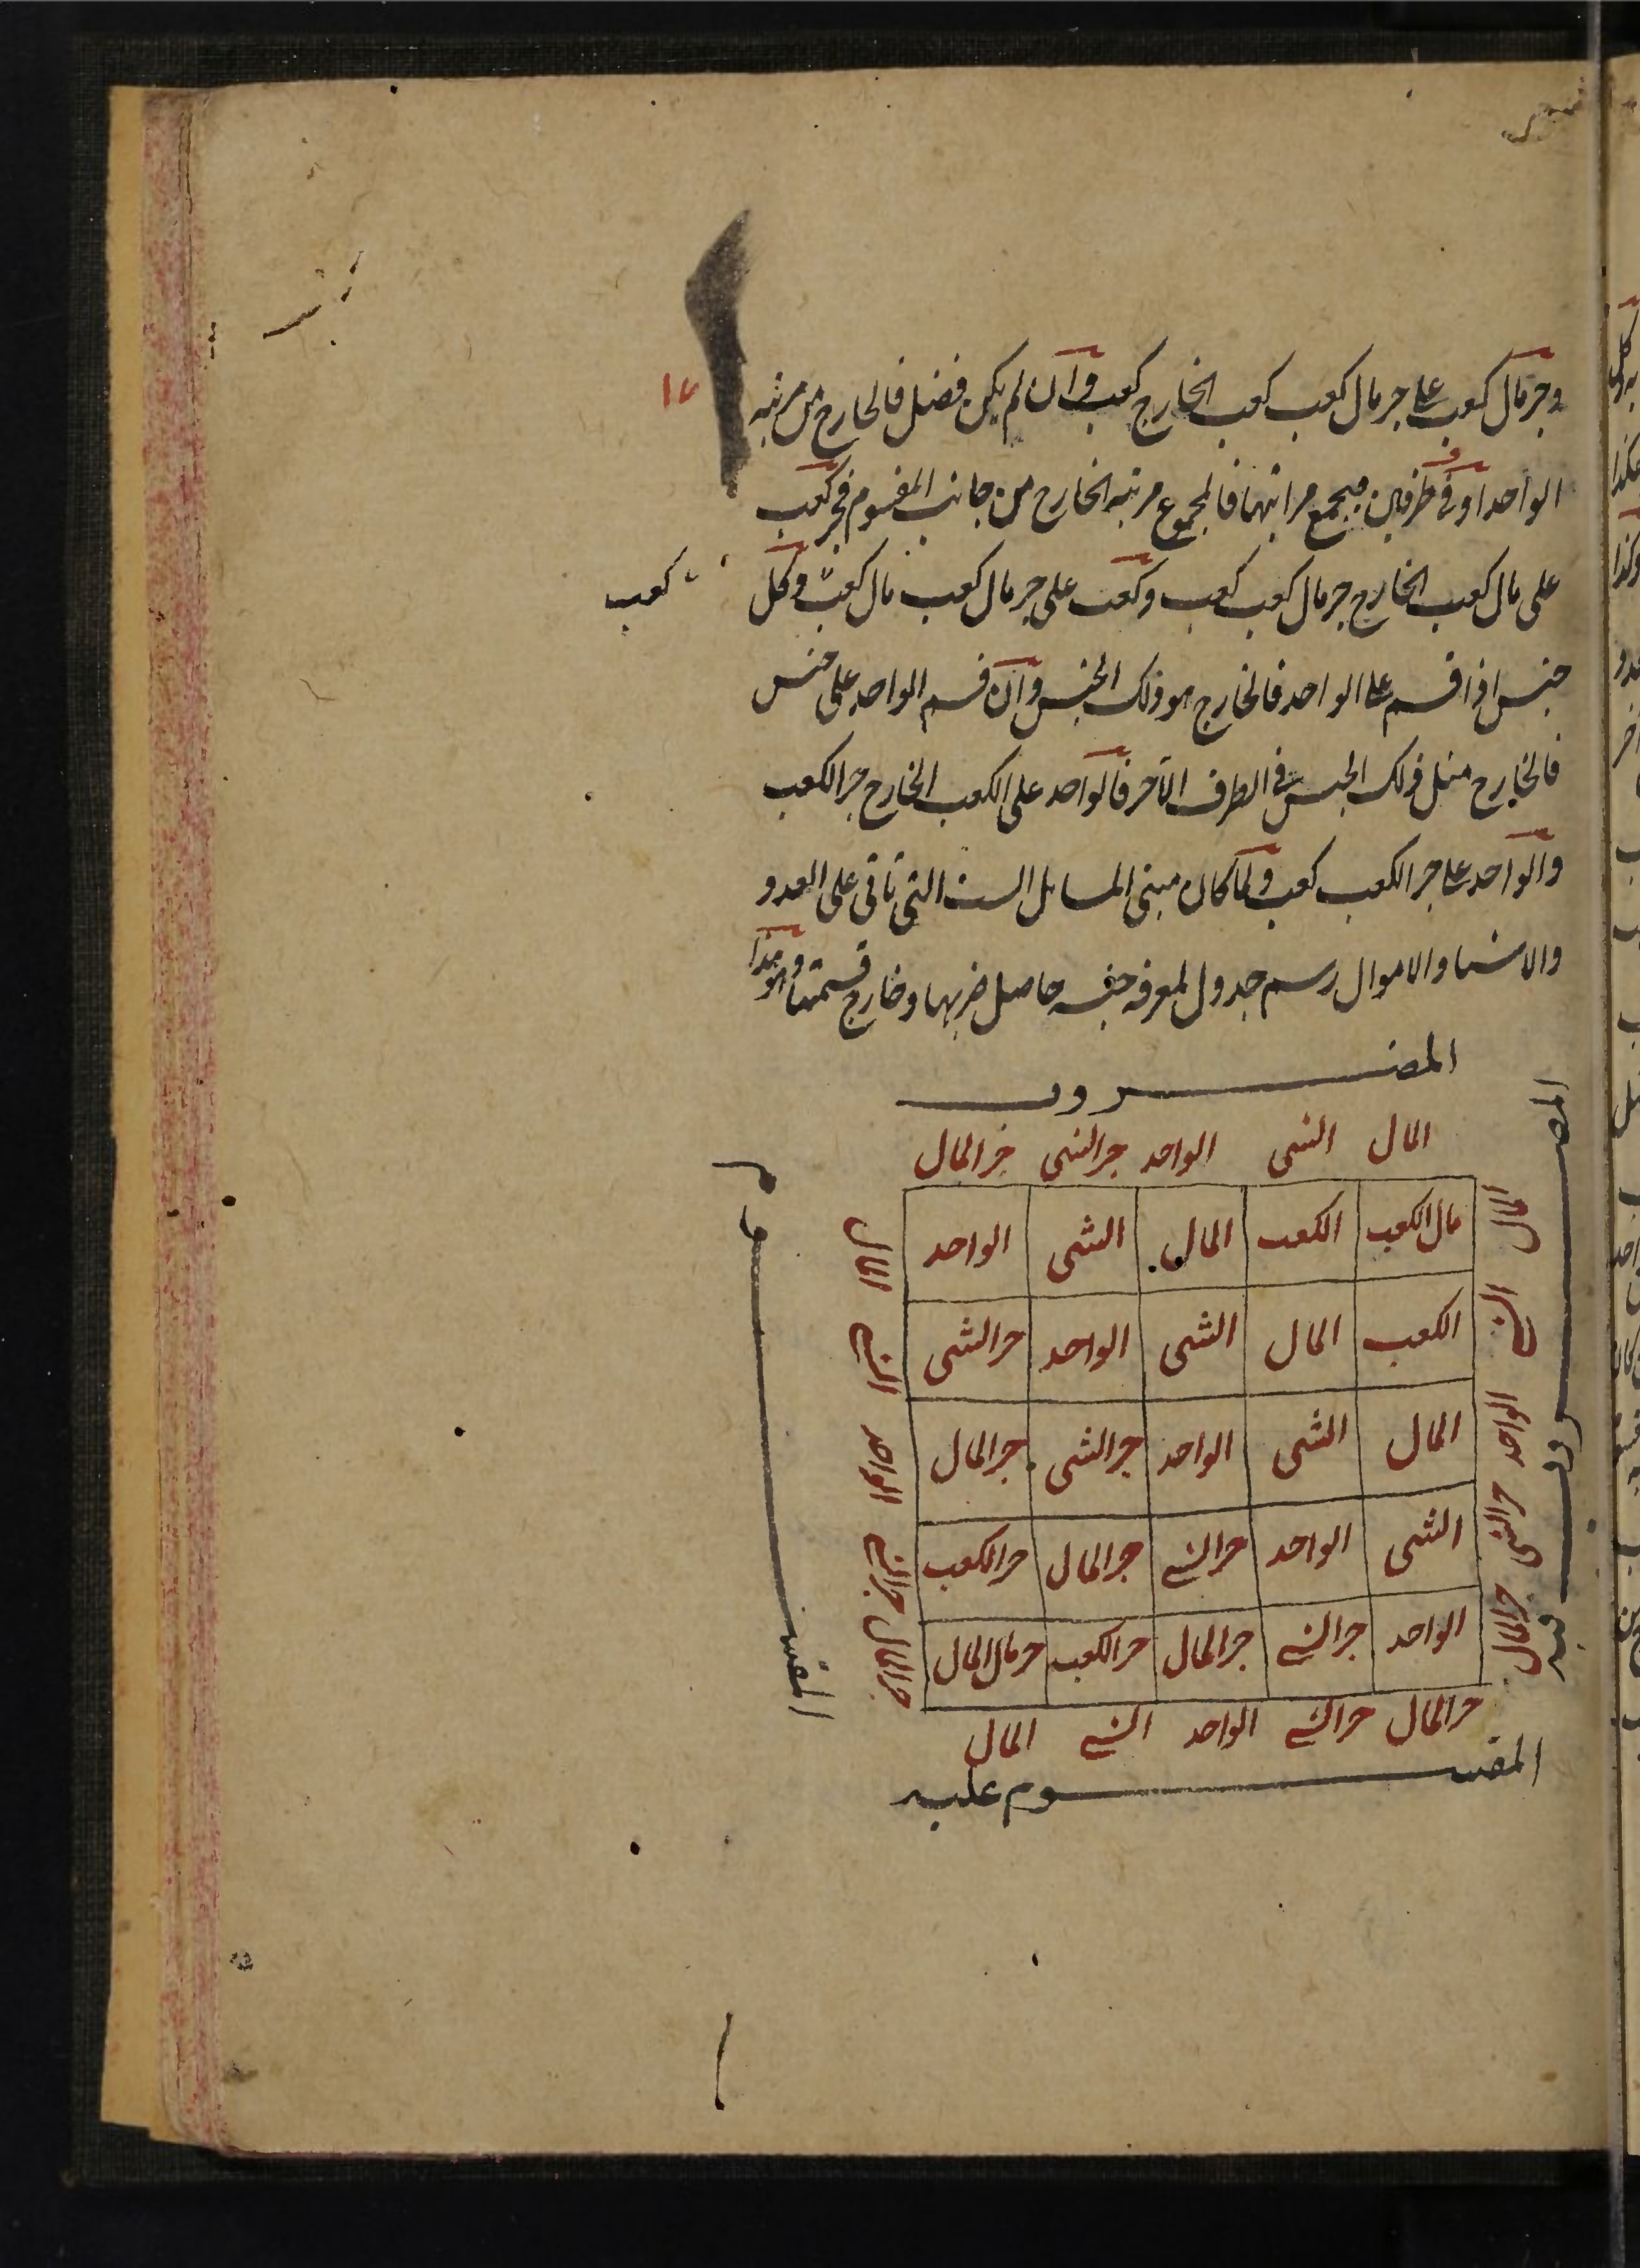 وجزمال كعب على جزمال كعب كعب الخارج كعب وان لم يكن فضل فالخارج من مرتبه
الواحد او فى طرفين فيجمع مراتبهما فالمجموع مرتبه الخارج من جانب المقسوم فجز كعب
على مال كعب الخارج جزمال كعب كعب وكعب على جزمال كعب مال كعب وكل
كعب
جنس اذا قسم على الواحد فالخارج هو ذلك الجنس وان قسم الواحد على جنس
فالخارج مثل ذلك الجنس فى الطرف الآخر فالواحد على الكعب الخارج جز الكعب
والواحد على جز الكعب كعب ولما كان مبنى المسايل الست التى تاتى على العدد
والاشيا والاموال رسم جدول لمعرفه جنسه حاصل ضربها وخارج قسمتها وهو هذا
المضروب
المال الشى الواحد جز الشى جز المال
المضروب فيه
المال الشى الواحد جز الشى جز المال
مال الكعب الكعب المال الشى الواحد
الكعب المال الشى الواحد جز الشى
المال الشى الواحد جز الشى جز المال
الشى الواحد جز الشى جز المال جز الكعب
الواحد جز الشى جز المال جز الكعب جز مال المال
المال الشى الواحد جز الشى جز المال
المقسوم
جز المال جز الشى الواحد الشى المال
المقسوم عليه